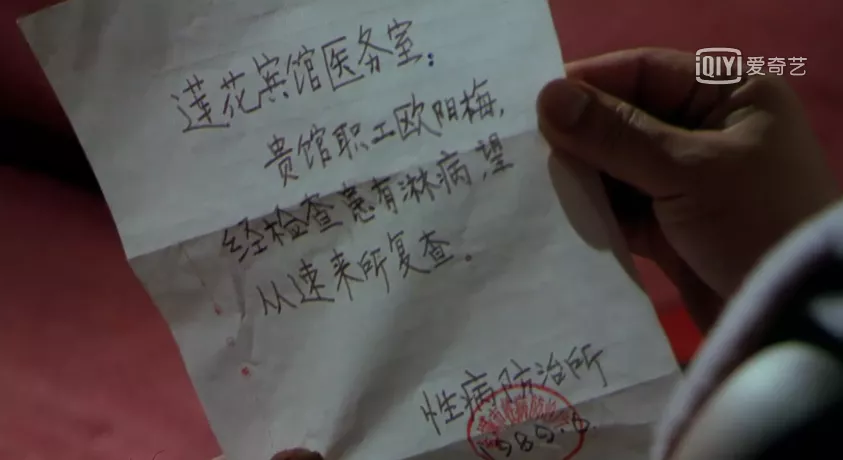 iQIYI 爱奇艺
莲花宾馆医务室：
贵馆职工欧阳梅，
经检查患有淋病，望
从速来所复查。
性病防治所
1989.6.